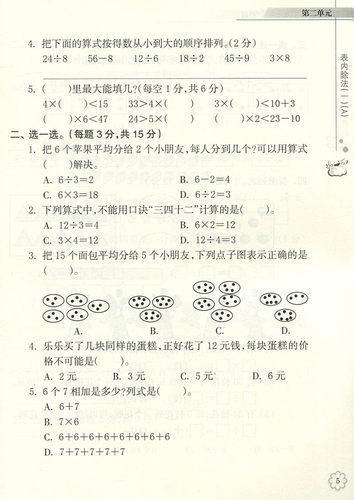 第二单元
表内除法(一)(A)
4. 把下面的算式按得数从小到大的顺序排列。(2分)
24÷8 56−8 12÷6 18÷2 45÷9 3×8
5. ( )里最大能填几?(每空1分,共6分)
4×( )<15 33>4×( ) 3×( )<10+3
( )×6<47 24>5×( ) ( )×2<23−10
二、选一选。(每题3分,共15分)
1. 把6个苹果平均分给2个小朋友,每人分到几个?可以用算式
( )解决。
A. 6÷3=2 B. 6−2=4
C. 6×3=18 D. 6÷2=3
2. 下列算式中,不能用口诀“三四十二”计算的是( )。
A. 12÷3=4 B. 6×2=12
C. 3×4=12 D. 12÷4=3
3. 把15个面包平均分给5个小朋友,下列点子图表示正确的是
( )。
A. B. C. D.
4. 乐乐买了几块同样的蛋糕,正好花了12元钱,每块蛋糕的价
格不可能是( )。
A. 2元 B. 3元 C. 5元 D. 6元
5. 6个7相加是多少?列式是( )。
A. 6+7
B. 7×6
C. 6+6+6+6+6+6+6+6
D. 7+7+7+7+7
5